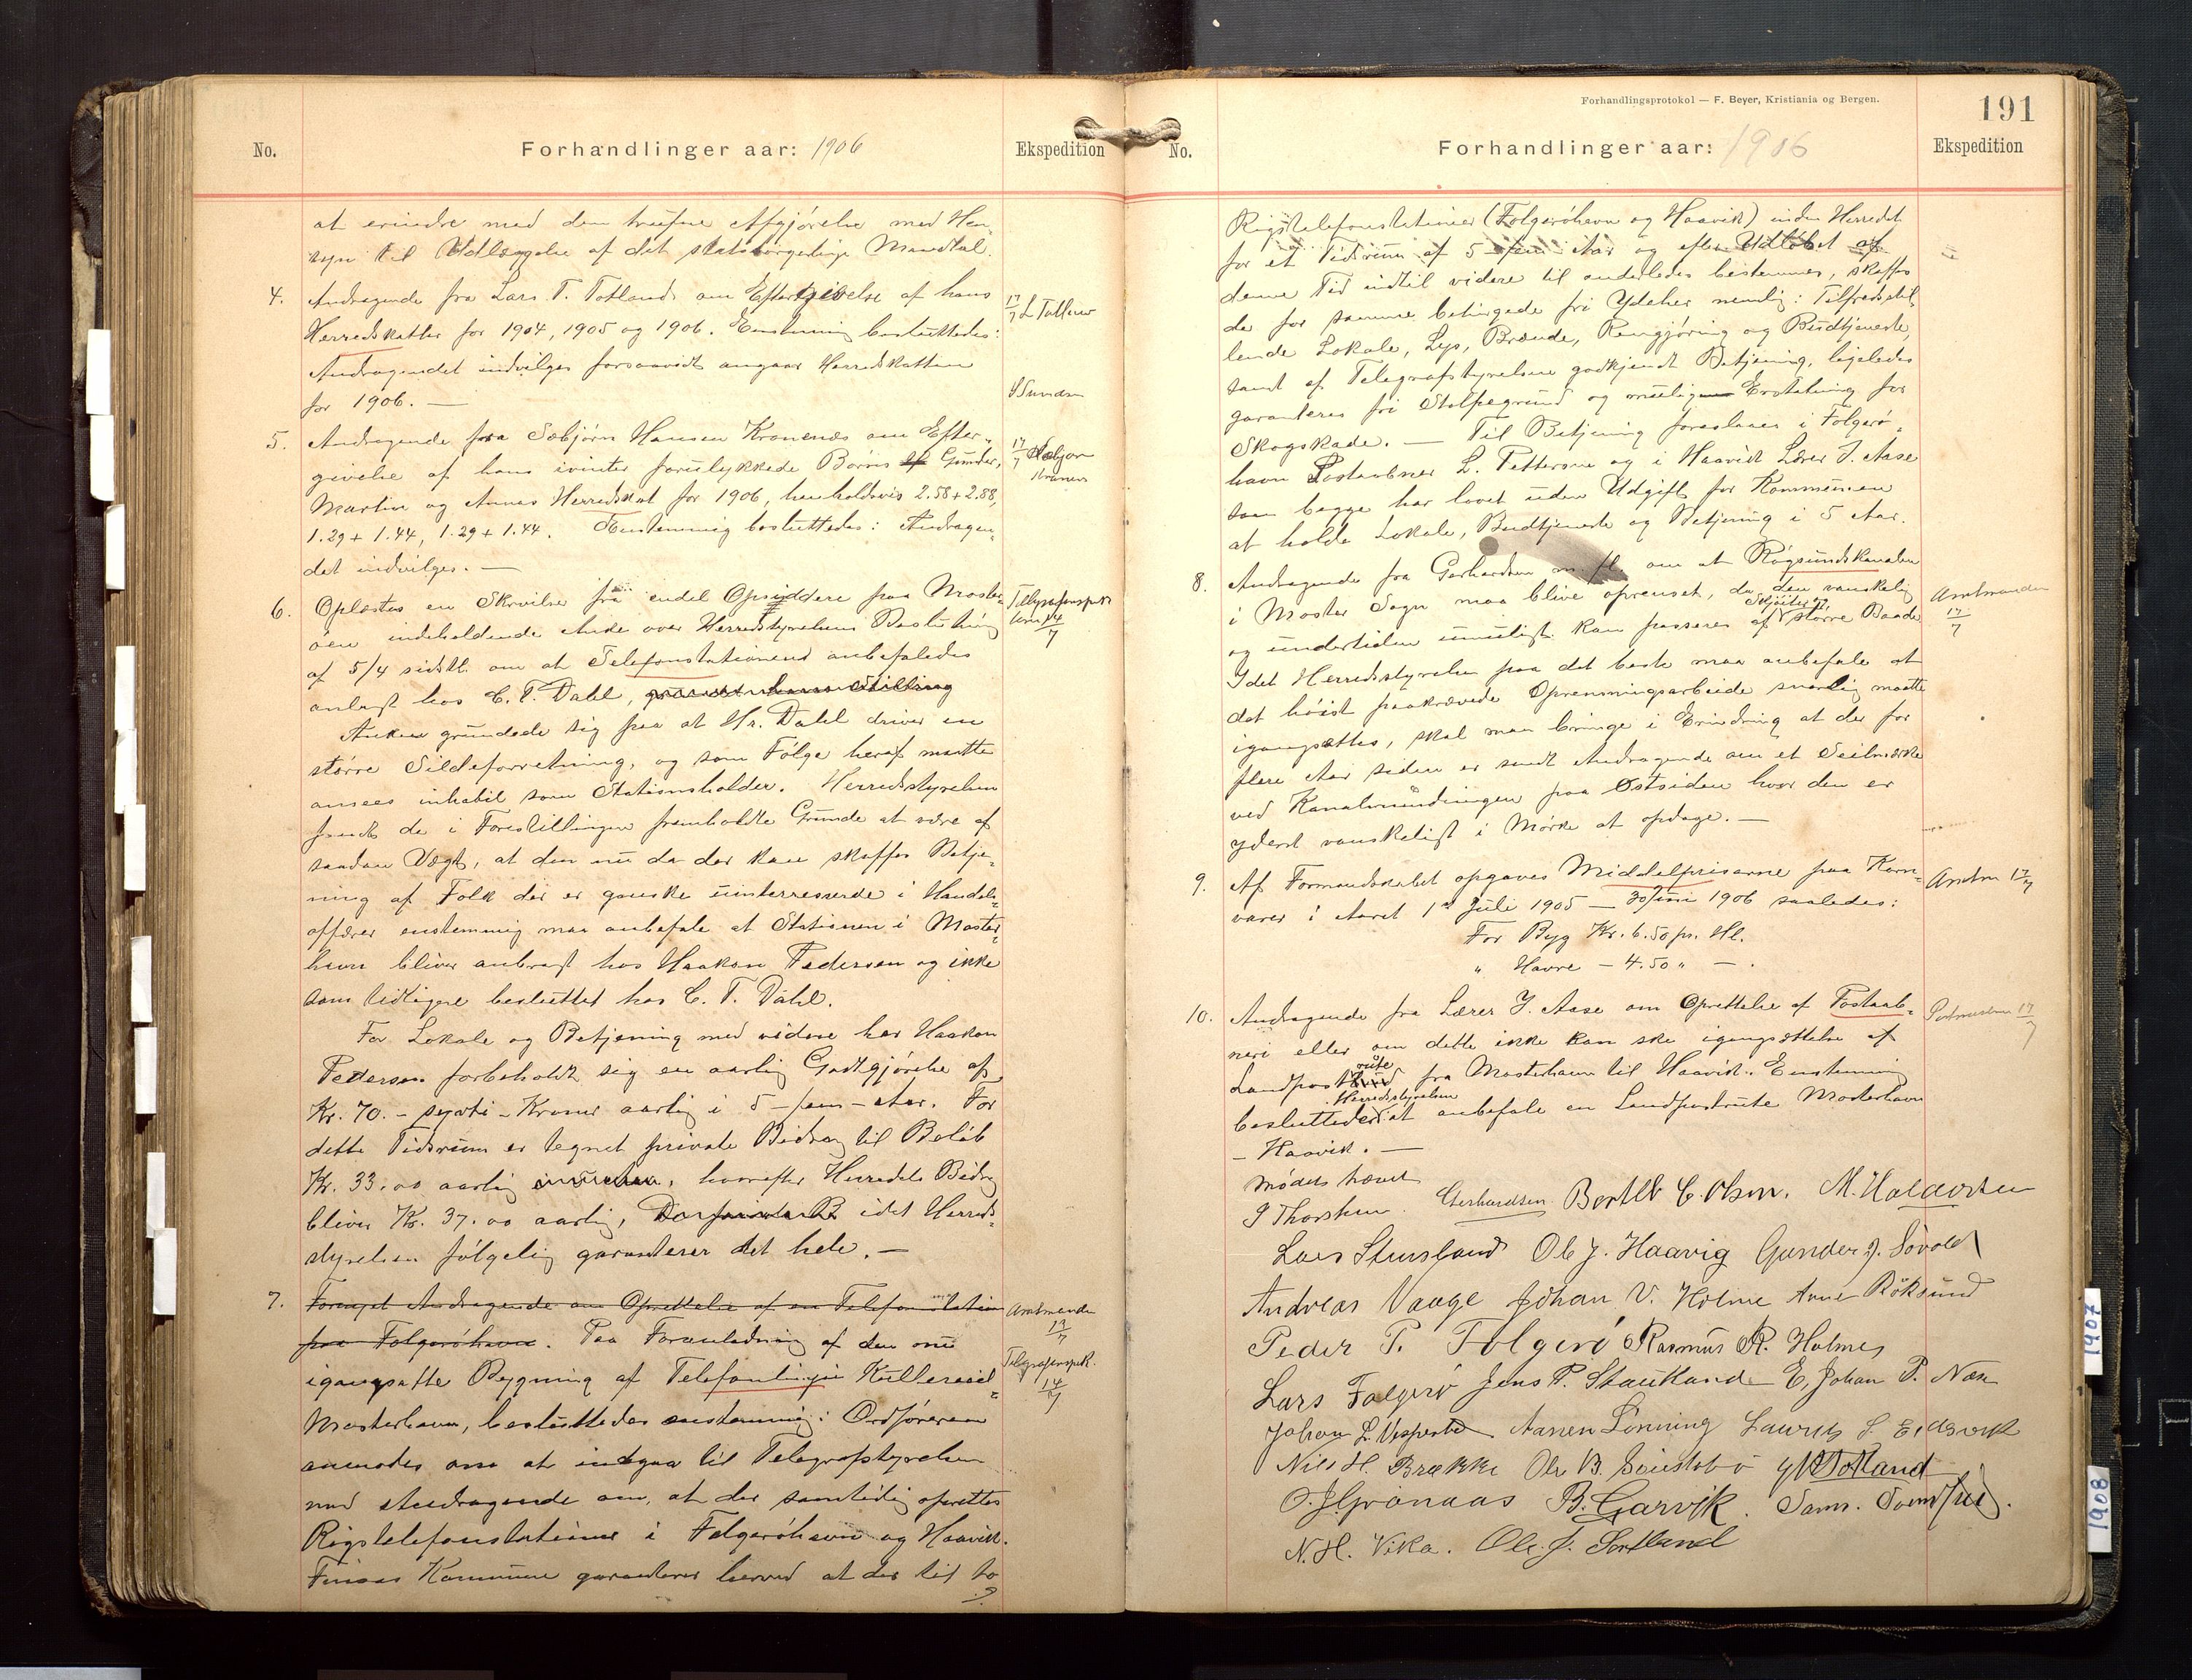 No.
Forhandlinger aar: 1906
Ekspedition
at erindre mod den trufne Afgjørelse med Hen-
syn til Udlæggelse af det statsborgerlige Mandtal.
4. Andragende fra Lars T. Totland om Eftergivelse af hans
Herredskatter for 1904, 1905 og 1906. Enstemmig besluttedes:
Andragendet indvilges forsaavidt angaar Herredskatten
for 1906. —
17/7 L Totland
S Sunden
5. Andragende fra Sæbjørn Hansen Kronenes om Efter-
givelse af hans ivinter forulykkede Børns Gunder,
Martin og Annas Herredskat for 1906, henholdsvis 2.58 + 2.88,
1.29 + 1.44, 1.29 + 1.44. Enstemmig besluttedes: Andragen-
det indvilges. —
17/7
6. Oplæstes en Skrivelse fra endel Opsiddere paa Moster-
øen indeholdende Anke over Herredstyrelsens Beslutning
af 5/4 sidstl. om at Telefonstationen anbefaledes
anbragt hos C. T. Dahl,
Anken grundede sig paa at Hr. Dahl driver en
større Sildeforretning, og som Følge heraf maatte
ansees inhabil som Stationsholder. Herredsstyrelsen
fandt de i Forestillingen fremholdte Grunde at være af
saadan Vægt, at den nu da der kan skaffes Betje-
ning af Folk der er ganske uinterresserede i Handels-
affærer enstemmig maa anbefale at Stationen i Moster-
havn bliver anbragt hos Haakon Pedersen og ikke
som tidligere besluttet hos C. T. Dahl.
For Lokale og Betjening med videre har Haakon
Pedersen forbeholdt sig en aarlig Godtgjørelse af
Kr. 70. – sytti – Kroner aarlig i 5 – fem – Aar. For
dette Tidsrum er tegnet private Bidrag til Beløb
Kr. 33.00 aarlig, hvorefter Herredets Bidrag
bliver Kr. 37.00 aarlig, idet Herreds-
styrelsen følgelig garanterer det hele. —
Telegrafinspek
14/7
7. Fornyet Andragende om Oprettelse af en Telefonstation
paa Folgerøhavn. Paa Foranledning af den nu
igangsatte Bygning af Telefonlinjen Kulleseid-
Mosterhavn, besluttedes enstemmig: Ordføreren
anmodes om at indgaa til Telegrafstyrelsen
med Andragende om, at der samtidig oprettes
Rigstelefonstationer i Folgerøhavn og Haavik.
Finaas Kommune garanterer herved at der til to
Amtmanden 17/7
Telegrafinspek. 14/7
Forhandlingsprotokol — F. Beyer, Kristiania og Bergen.
191
No.
Forhandlinger aar: 1906
Ekspedition
Rigstelefonstationer (Folgerøhavn og Haavik) inden Herredet
for et Tidsrum af 5 – fem – Aar og efter Udløbet af
denne Tid indtil videre til anderledes bestemmes, skaffes
de for samme betingede fri Ydelser nemlig: Tilfredsstil-
lende Lokale, Lys, Brænde, Rengjøring og Budtjeneste,
samt af Telegrafstyrelsen godkjendt Betjening, ligeledes
garanteres fri Stolpegrund og mulig Erstatning for
Skogskade. — Til Betjening foreslaaes i Folgerø-
havn Postaabner L. Pettersen og i Haavik Lærer J. Aase
som begge har lovet uden Udgift for Kommunen
at holde Lokale, Budtjeneste og Betjening i 5 Aar.
8. Andragende fra Gerhardsen m fl. om at Røgsundskanalen
i Moster Sogn maa blive oprenset, da den vanskelig
og undertiden umuligt kan passeres af Skøiter og større Baade
Idet Herredsstyrelsen paa det beste maa anbefale at
det høist paakrævede Oprensningsarbeide snarlig maatte
igangsættes, skal man bringe i Erindring at der for
flere Aar siden er sendt Andragende om et Seilmærke
ved Kanalmundingen paa Østsiden hvor den er
yderst vanskeligt i Mørke at opdage. —
Amtmanden 17/7
9. Af Formandskabet opgaves Middelpriserne paa Korn-
varer i Aaret 1ste Juli 1905 — 30 Juni 1906 saaledes:
For Byg Kr. 6.50 pr. Hl.
„ Havre – 4.50 „ — .
Amtm 17/7
10. Andragende fra Lærer J. Aase om Oprettelse af Postaab-
neri eller om dette ikke kan ske igangsættelse af
Landpostrute fra Mosterhavn til Haavik. Enstemmig
besluttedes Herredsstyrelsen at anbefale en Landpostrute Mosterhavn
– Haavik. —
17/7
Mødet hævet
P Thorsheim. Gerhardsen. Bertel C. Olsen. M. Halvorsen
Lars Stensland Ole J. Haavig Gunder J. Løvold
Andreas Vaage Johan V. Holme Arne Røksund
Peder P. Folgerø Rasmus R. Holmes
Lars Folgerø Jens P. Staukland E. Johan P. Næs
Johan L. Vespestad Aanen Lønning Laurits S. Eidsvik
Nils H. Brække Ole B. Totland
O. J. Grønaas B. Garvik. Sams.
N. H. Vika. Ole J. Sortland
1907
1908